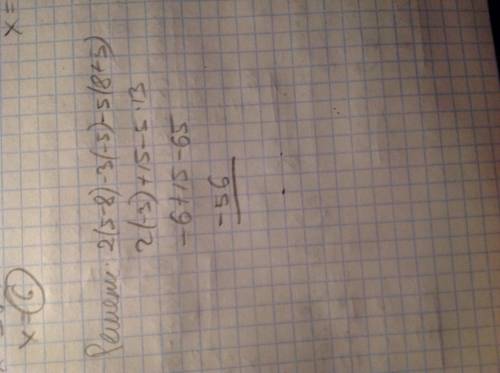 x =
x - 6
Решение: 2(5-8)-3(-5)-5(8+5)
2(-3)+15-5·13
-6+15-65
-56